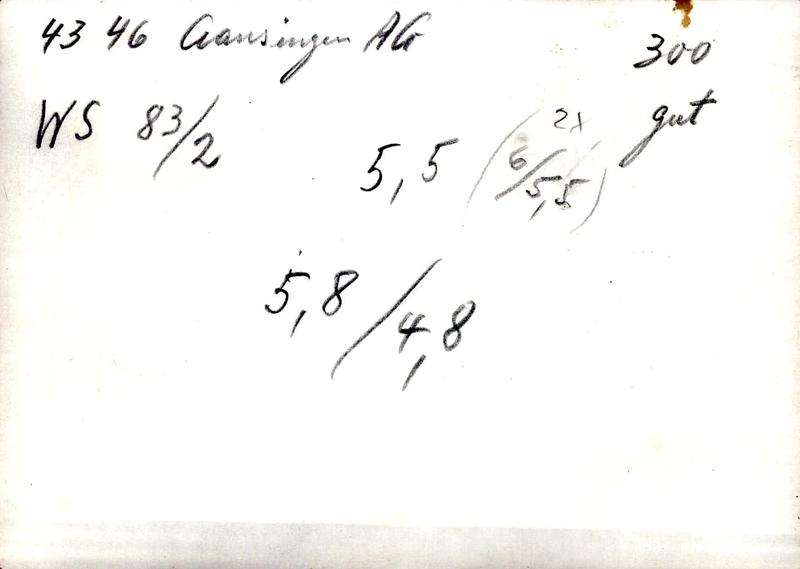 43 46 Gansingen AG
300
WS 83/2
gut
5,5 (6/5,5) 2x
5,8/4,8